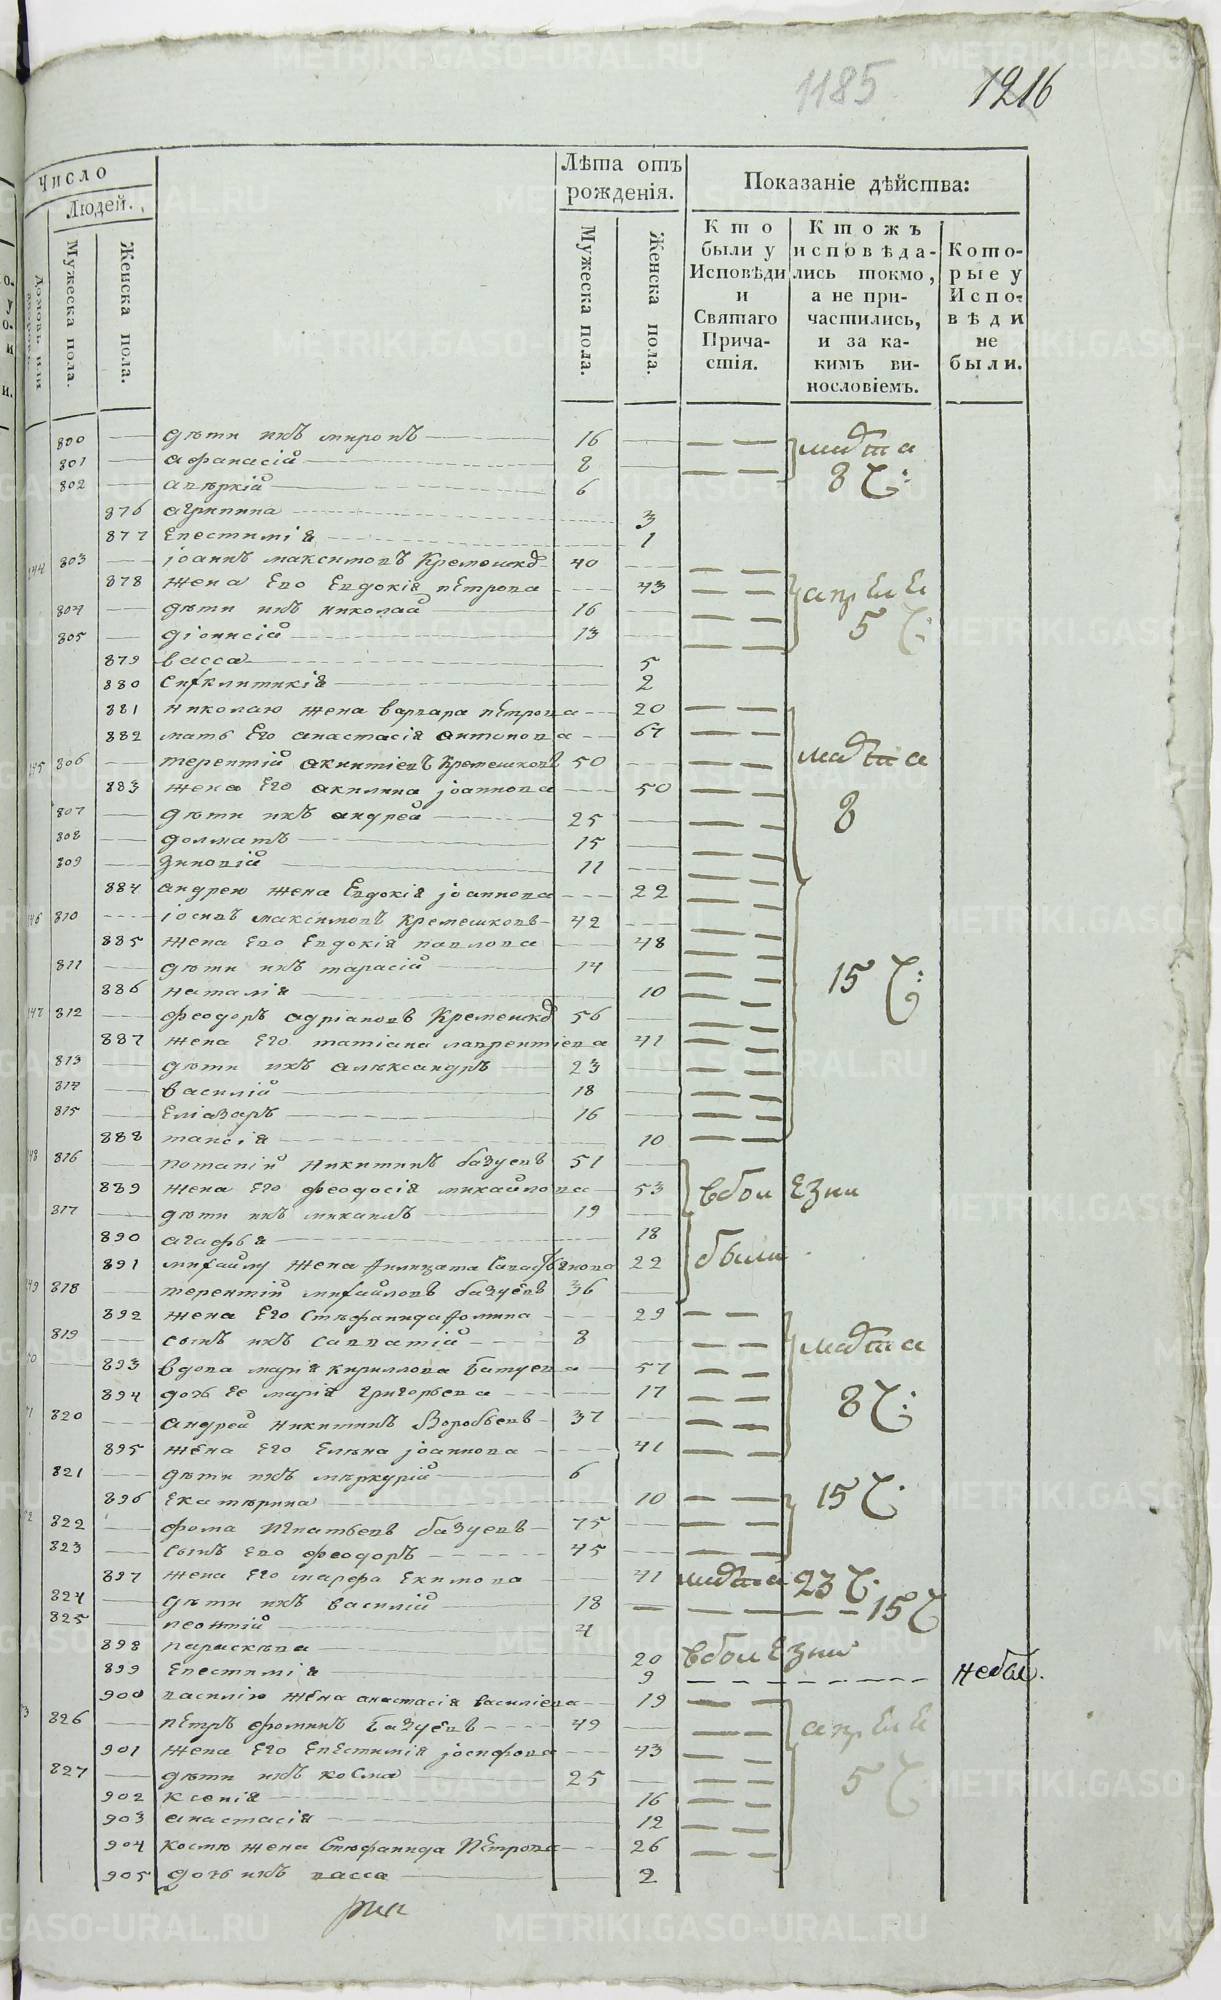 1185 1216
Число
Людей.
Мужеска пола.
Женска пола.
Лѣта отъ рожденія.
Мужеска пола.
Женска пола.
Показаніе дѣйства:
Кто были у Исповѣди и Святаго Прича- стія.
Ктожъ исповѣда- лись токмо, а не при- частились, и за ка- кимъ ви- нословіемъ.
Кото- рые у Испо- вѣди не были.
800 дѣти ихъ миронъ 16 марта
801 афанасій 8
802 авѣркій 6 8 ч:
876 агрипина 3
877 Епестимія 1
803 іоаннъ максимовъ Кремешко 40
878 жена Его Евдокія пЕтрова 43 апрЕлЕ
804 дѣти ихъ николай 16
805 діонисій 13 5 ч:
879 васса 5
880 сигклитикія 2
881 николаю жена варвара пЕтрова 20
882 мать Его анастасія антонова 67
806 терентій акинтіевъ Кремешковъ 50 марта
883 жена Его акилина іоаннова 50
807 дѣти ихъ андрей 25 8
808 долматъ 15
809 Зиновій 11
884 андрею жена Евдокія іоаннова 22
810 іосивъ максимовъ Кремешковъ 42
885 жена Его Евдокія павлова 48
811 дѣти ихъ тарасій 14 15 ч:
886 наталія 10
812 феодоръ адріановъ Кремешко 56
887 жена Его татіана лаврентіева 41
813 дѣти ихъ алѣксандръ 23
814 василій 18
815 Еліазаръ 16
888 таисія 10
816 потапій Никитинъ базуевъ 51
889 жена Его феодосія михайлова 53 вбол Езни
817 дѣти ихъ михаилъ 19
890 агафья 18 были
891 михайлу жена 22
818 терентій михайловъ базуевъ 36
892 жена Его Стѣфанида фомина 29
819 сынъ ихъ савватій 8 марта
893 вдова марія кириллова батуева 57
894 дочь Ее марія григорьева 17 8 ч:
820 андрей никитинъ Воробьевъ 37
895 жена Его Елѣна іоаннова 41
821 дѣти ихъ мѣркурій 6
896 Екатѣрина 10 15 ч.
822 фома Игнатьевъ базуевъ 75
823 сынъ Его феодоръ 45
897 жена Его марфа Екимова 41 марта 23 ч.
824 дѣти ихъ василій 18 15 ч
825 леонтій 4
898 параскѣва 20 вбол Езни
899 Епестимія 9 небыл.
900 василію жена анастасія василіева 19
826 пЕтръ фоминъ базуевъ 49 апрЕлЕ
901 жена Его Епестимія іосифова 43
827 дѣти ихъ косма 25 5 ч
902 ксенія 16
903 анастасія 12
904 космѣ жена Стѣфанида пЕтрова 26
905 дочь ихъ васса 2